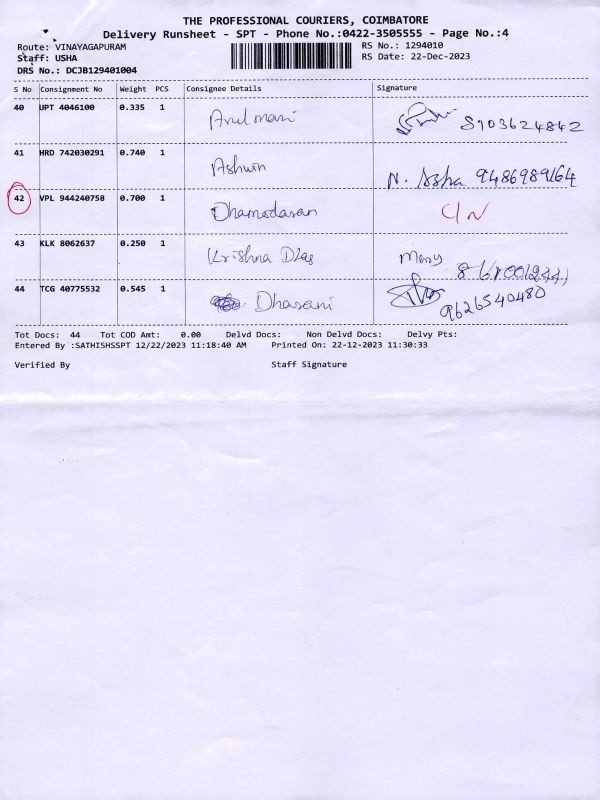 THE PROFESSIONAL COURIERS, COIMBATORE
Delivery Runsheet - SPT - Phone No.:0422-3505555 - Page No.:4
Route: VINAYAGAPURAM RS No.: 1294010
Staff: USHA RS Date: 22-Dec-2023
DRS No.: DCJB129401004
S No Consignment No Weight PCS Consignee Details Signature
40 UPT 4046100 0.335 1 Arulmani 8903624842
41 HRD 742030291 0.740 1 Ashwin N. Asha 9486989164
42 VPL 944240758 0.700 1 Dhamodaran C/N
43 KLK 8062637 0.250 1 Krishna Mary
44 TCG 40775532 0.545 1 Dharani 9626540480
Tot Docs: 44 Tot COD Amt: 0.00 Delvd Docs: Non Delvd Docs: Delvy Pts:
Entered By :SATHISHSSPT 12/22/2023 11:18:40 AM Printed On: 22-12-2023 11:30:33
Verified By Staff Signature